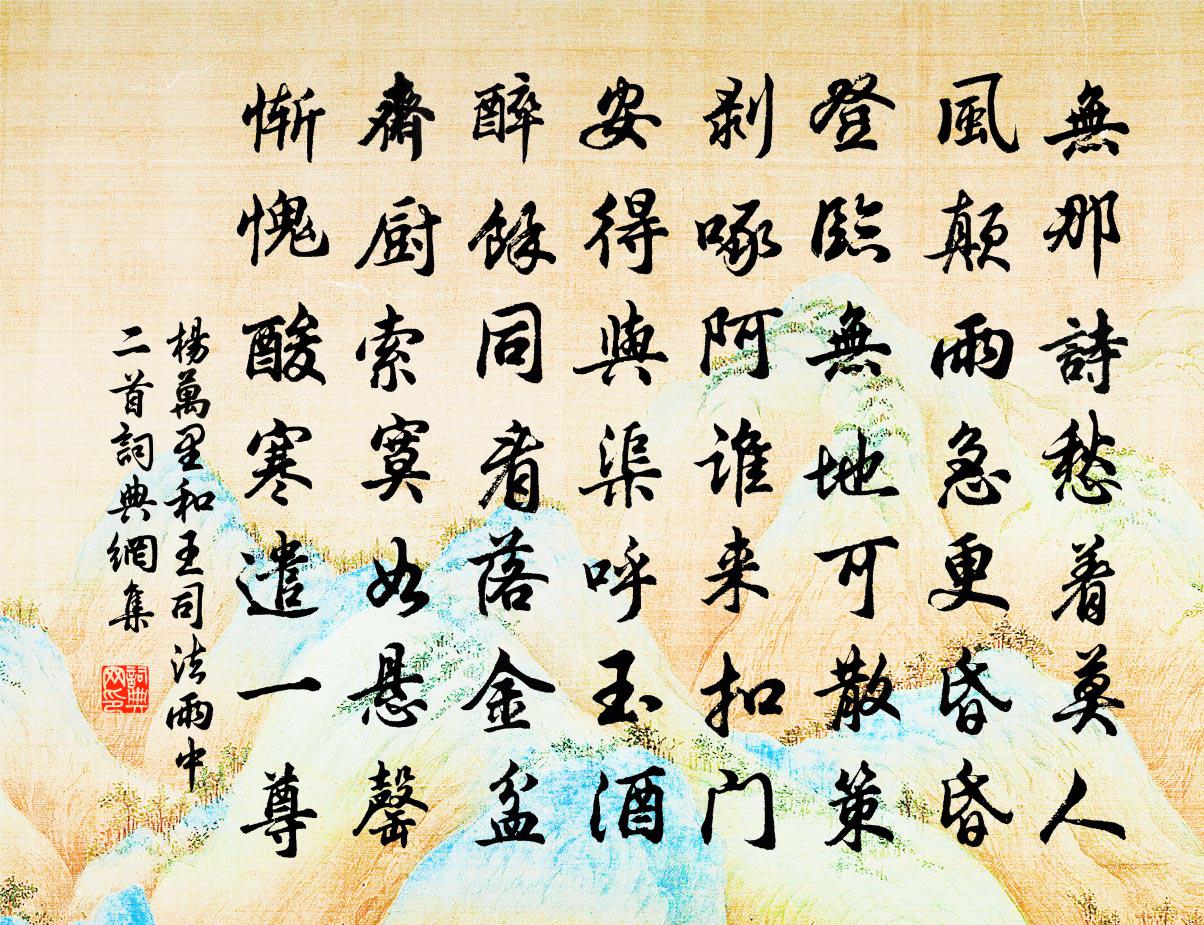 無那詩愁着莫人
風顛雨急更昏昏
登臨無地可散策
剥啄阿誰来扣门
安得與渠呼玉酒
醉餘同看落金盆
齋厨索寞如悬罄
慚愧酸寒遣一尊
楊萬里和王司法雨中
二首詞典網集
詞典